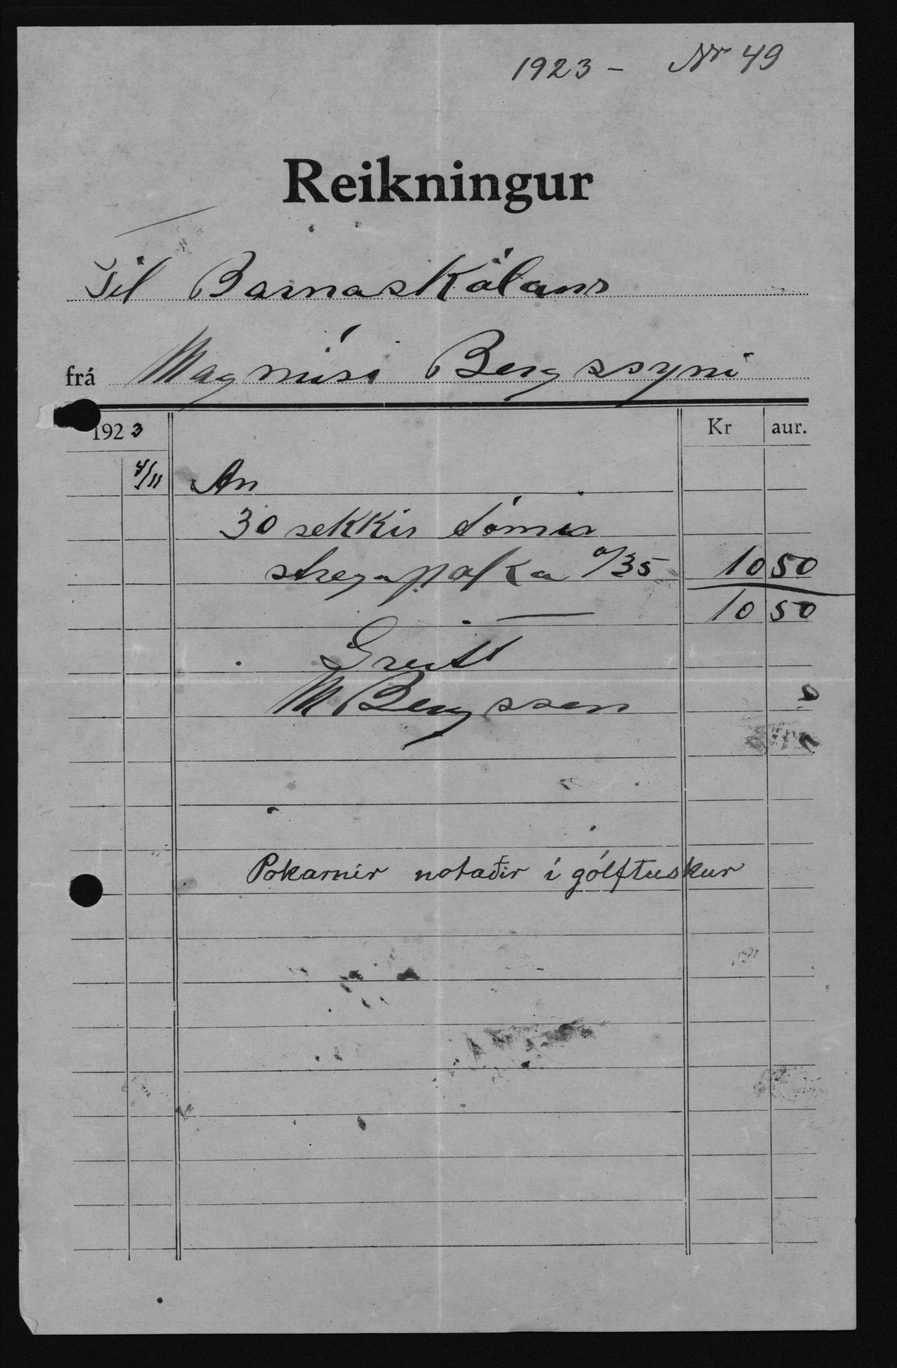 1923 - Nr 49
Reikningur
Til Barnaskólans
frá Magnúsi Bergssyni
1923 Kr aur.
4/11 An
30 sekkir tómir
a/35 10 50
10 50
Greitt
M Bergsson
Pokarnir notaðir í gólftuskur